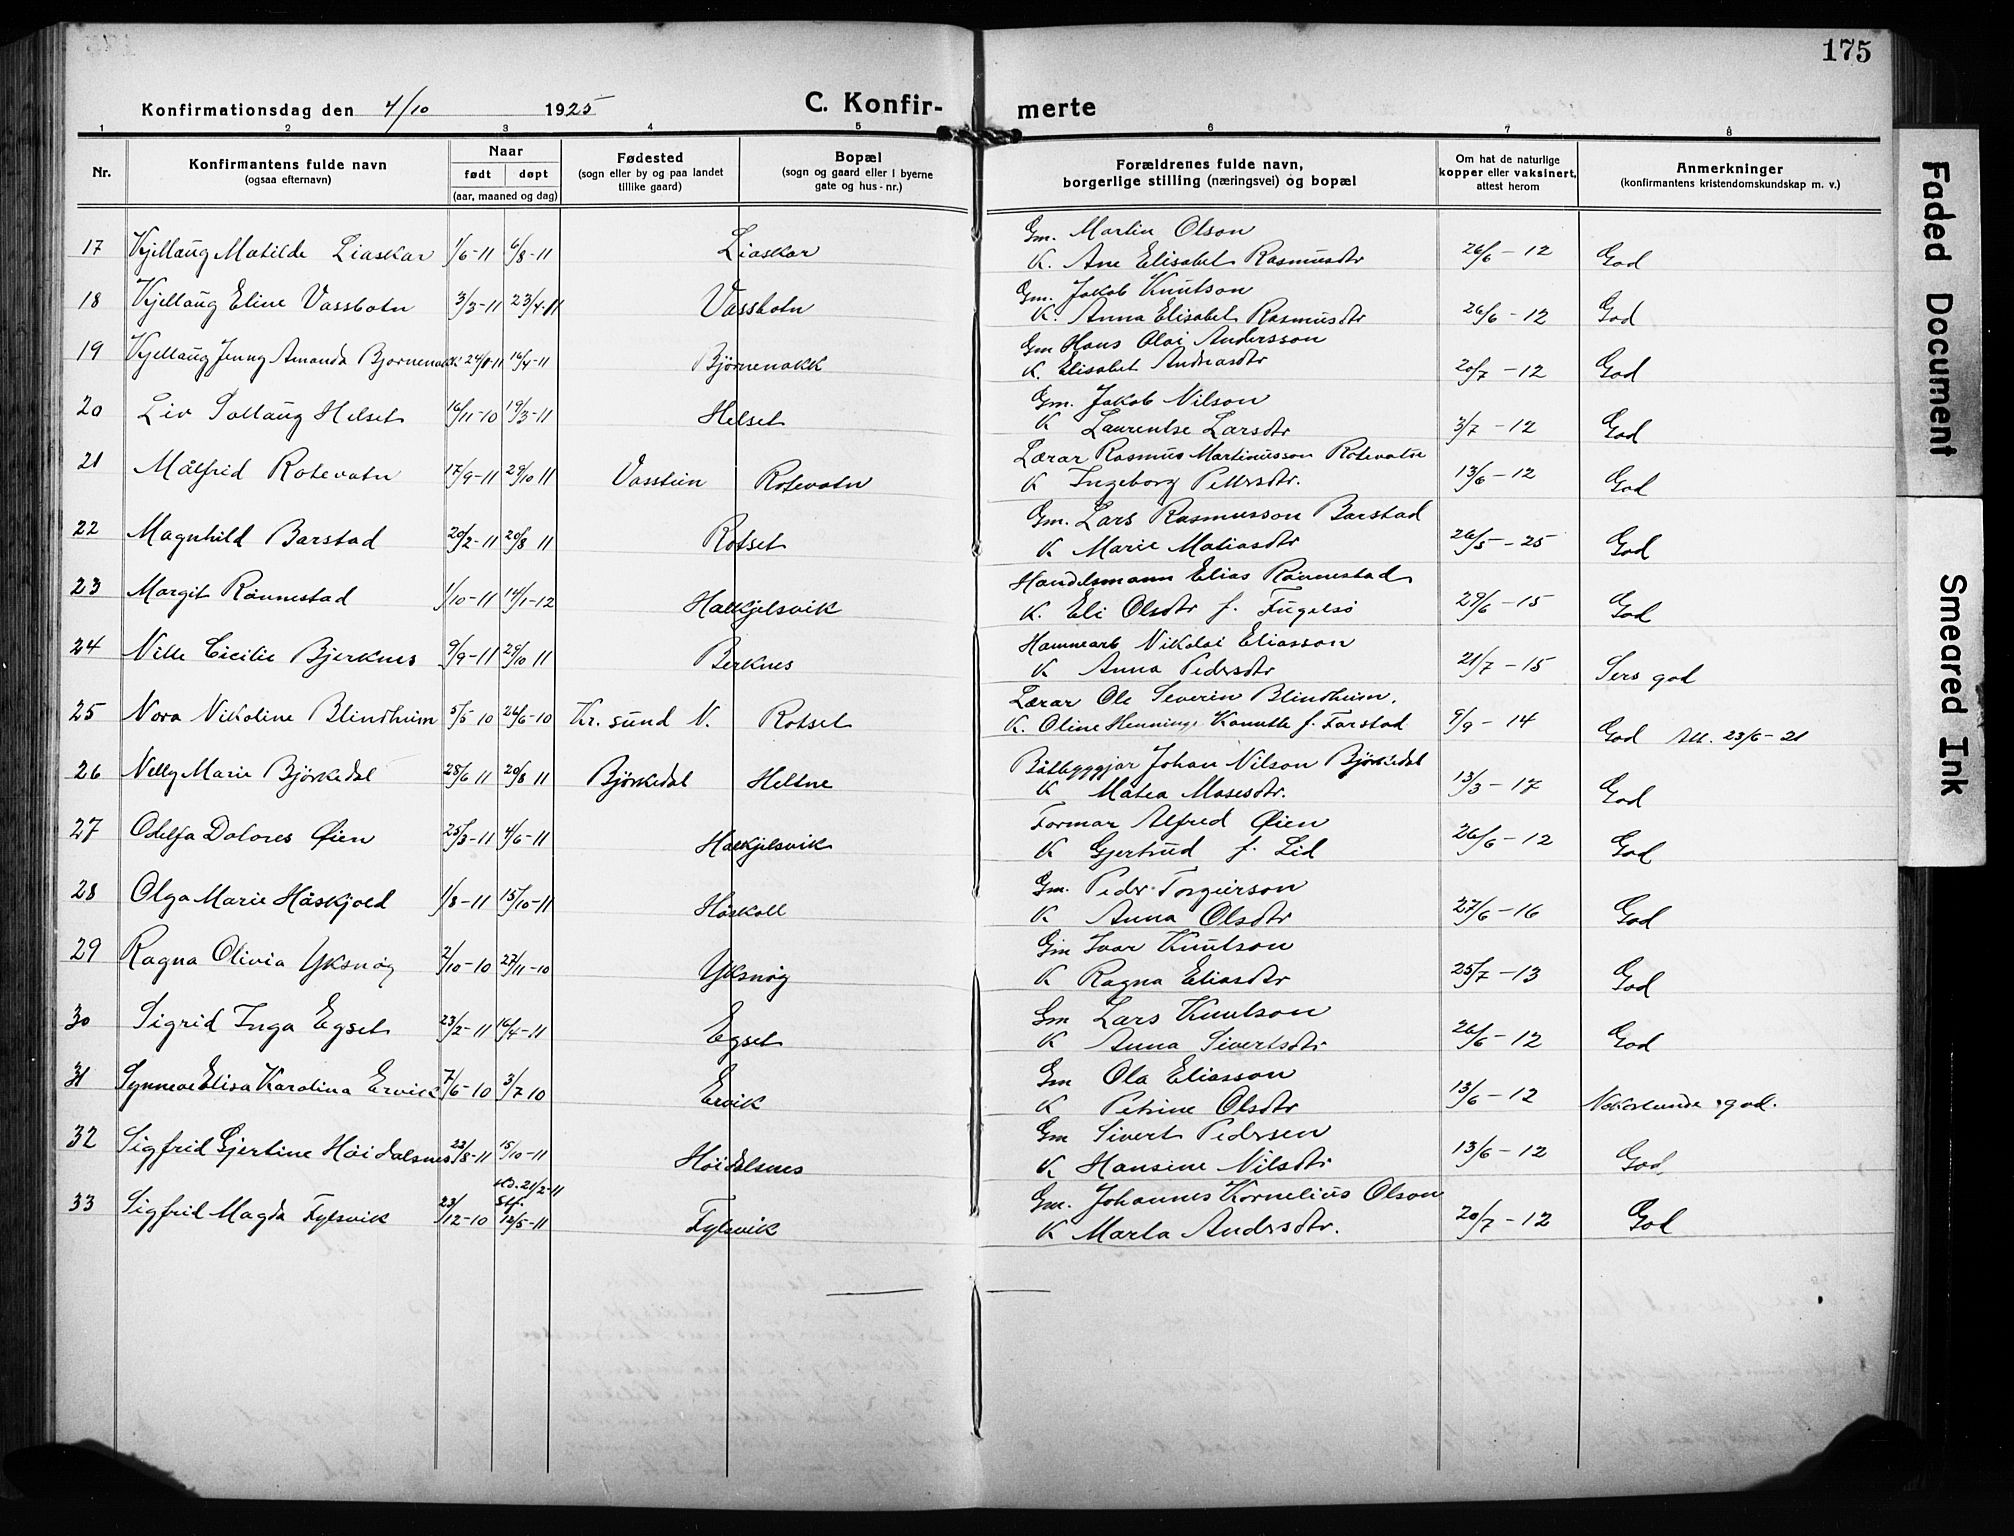 175
Konfirmationsdag den 4/10 1925 C. Konfir- merte
1 2 3 4 5 6 7 8
Nr. Konfirmantens fulde navn (ogsaa efternavn) Naar født døpt (aar, maaned og dag) Fødested (sogn eller by og paa landet tillike gaard) Bopæl (sogn og gaard eller i byerne gate og hus-nr.) Forældrenes fulde navn, borgerlige stilling (næringsvei) og bopæl Om hat de naturlige kopper eller vaksinert, attest herom Anmerkninger (konfirmantens kristendomskundskap m. v.)
17 Kjellaug Matilde Liaskar 1/6-11 6/8-11 Liaskar Gm. Martin Olson
K. Ane Elisabet Rasmusdtr 26/6-12 God
18 Kjellaug Eline Vassbotn 3/3-11 23/4-11 Vassbotn Gm. Jakob Knutson
K. Anna Elisabet Rasmusdtr 26/6-12 God
19 Kjellaug Jenny Amanda Bjornenakk 16/4-11 Björnenakk Gm Hans Olai Andersson
K. Elisabet Andreasdtr 20/7-12 God
20 Liv Sollaug Helset 16/11-10 19/3-11 Helset Gm. Jakob Nilson
K Laurentse Larsdtr 3/7-12 God
21 Målfrid Rotevatn 17/9-11 29/10 11 Vasstein Rotevatn Lærar Rasmus Martinusson Rotevatn
K Ingeborg Petersdtr. 13/6-12 God
22 Magnhild Barstad 20/2-11 20/8 11 Rotset Gm. Lars Rasmusson Barstad
K Marie Matiasdtr 26/5-25 God
23 Margit Rönnestad 1/10-11 14/1-12 Halkjelsvik Handelsmann Elias Rönnestad
K. Eli Olsdtr f. Fugelsö 29/6-15 God
24 Nille Cicilie Bjerknes 9/9-11 29/10 11 Berknes Hamnearb Nikolai Eliasson
K Anna Pedersdtr 21/7-15 Sers god
25 Nora Nikoline Blindheim 5/5 10 26/6-10 Kr. sund N. Rotset Lærar Ole Severin Blindheim.
K. Oline Henninge Kanutte f. Farstad 9/9-14 God Att. 23/6-21
26 Nelly Marie Björkedal 25/6 11 20/8 11 Björkedal Heltne Båtbyggjar Johan Nilson Björkedal
K Matea Mosesdtr. 13/3-17 God
27 Odelfa Dolores Øien 25/3-11 4/6-11 Halkjelsvik Formar Alfred Øien
K Gjertrud f. Lid 26/6-12 God
28 Olga Marie Håskjold 1/8-11 15/10-11 Håskoll Gm. Peder Torgeirson
K Anna Olsdtr 27/6-16 God
29 Ragna Olivia Yksnöy 2/10-10 27/11-10 Yksnöy Gm Ivar Knutson
K Ragna Eliasdtr 25/7-13 God
30 Sigrid Inga Egset 23/2-11 16/4-11 Egset Gm Lars Knutson
K Anna Sivertsdtr 26/6-12 God
31 Synneve Elisa Karolina Ervik 7/6-10 3/7 10 Ervik Gm Ola Eliasson
K Petrine Olsdtr 13/6-12 Nokorlunde god.
32 Sigfrid Gjertine Höidalsnes 23/8-11 15/10-11 Höidalsnes Gm Sivert Pedersen
K Hansine Nilsdtr 13/6-12 God
33 Sigfrid Magda Fylsvik 23/12-10 21/2-11 Stf. 12/5-11 Fylsvik Gm. Johannes Kornelius Olson
K Marta Andersdtr. 20/7-12 God
Faded Document
Smeared Ink